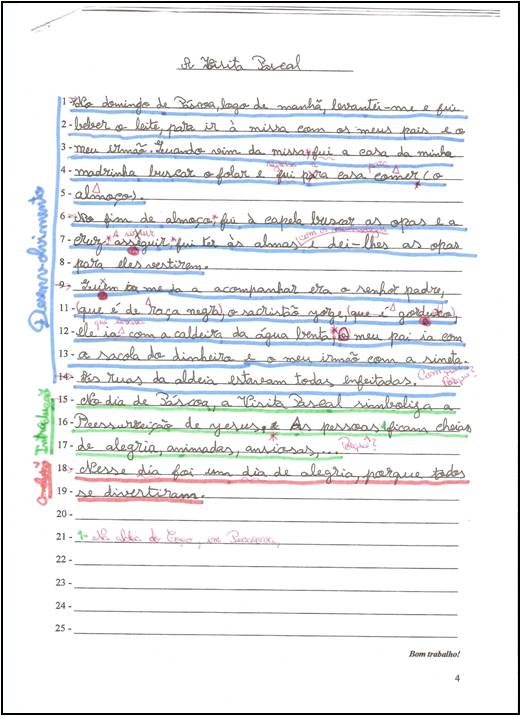 A Visita Pascal
1 - No domingo de Páscoa, logo de manhã, levantei-me e fui
2 - beber o leite, para ir à missa com os meus pais e o
3 - meu irmão. Quando vim da missa fui a casa da minha
4 - madrinha buscar o folar e fui para casa comer (o
5 - almoço).
6 - No fim de almoço, fui à capela buscar as opas e a
7 - cruz. A seguir fui ter às almas e dei-lhes as opas
8 - para eles vestirem.
9 - Quem me da a acompanhar era o senhor padre,
11 - (que é de raça negra), o sacristão yorge, (que é gorducho),
12 - ele ia com a caldeira da água benta, o meu pai ia com
13 - a sacola do dinheiro e o meu irmão com a sineta.
14 - As ruas da aldeia estavam todas enfeitadas.
Porquê?
15 - No dia de Páscoa, a Visita Pascal simboliza a
16 - Ressurreição de yesus. As pessoas ficam cheias
17 - de alegria, animadas, ansiosas,...
Porquê?
18 - Nesse dia foi um dia de alegria, porque todos
19 - se divertiram.
20 -
21 - Na aldeia do
22 -
23 -
24 -
25 -
Desenvolvimento
Introdução
Conclusão
Bom trabalho!
4